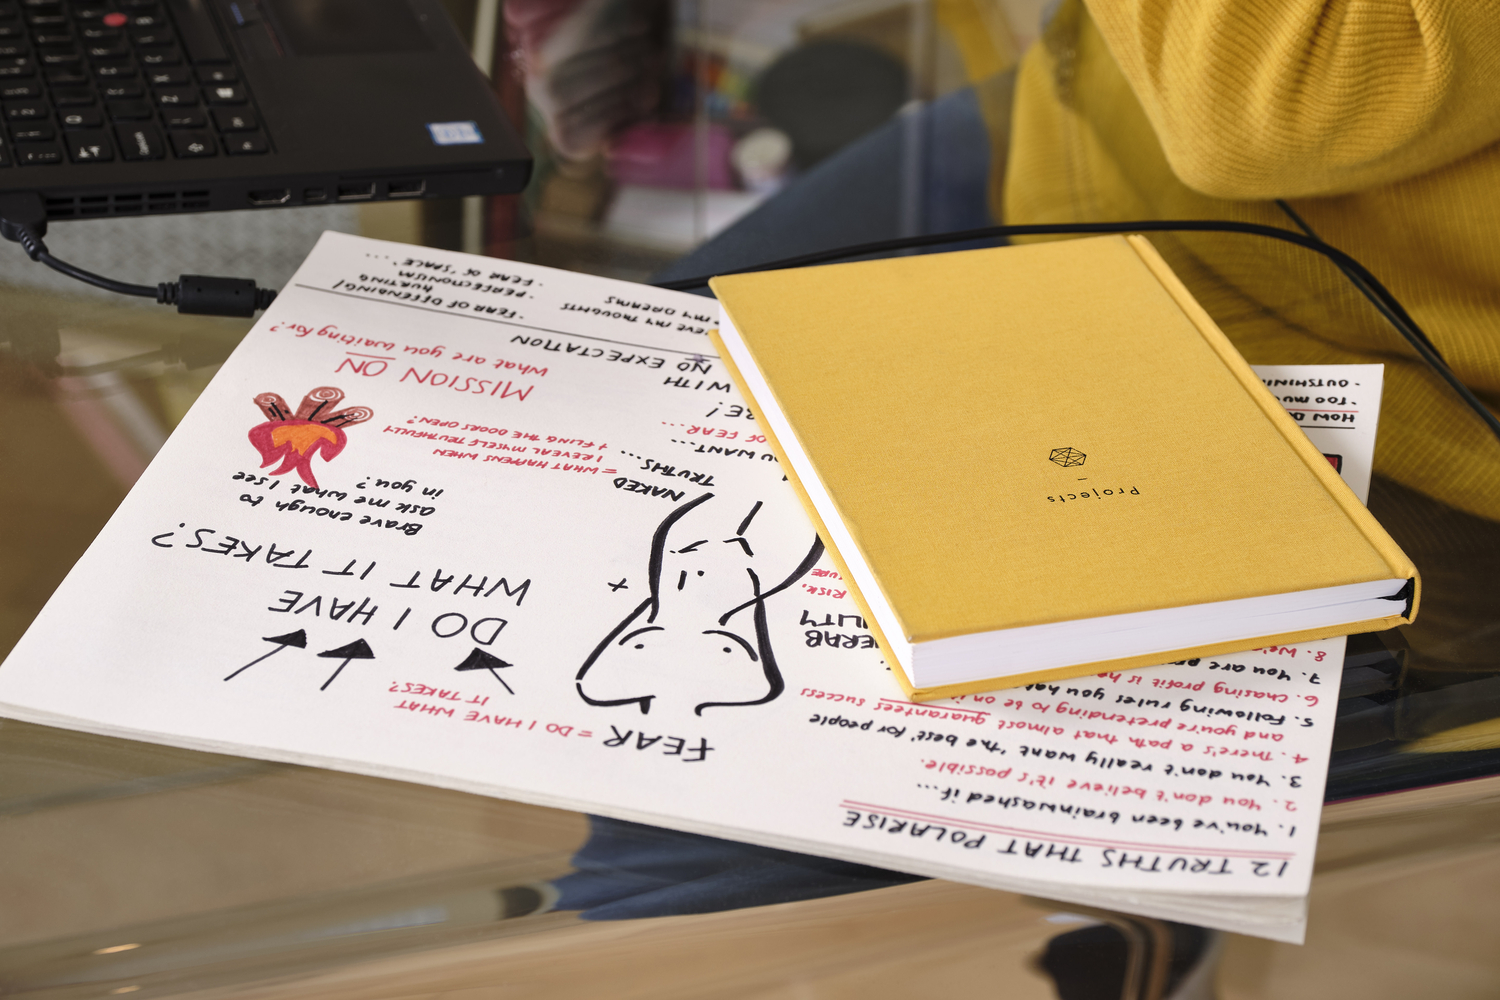 12 TRUTHS THAT POLARISE
1. You've been brainwashed if...
2. You don't believe it's possible.
3. You don't really want 'the best' for people
4. There's a path that almost guarantees success
and you're pretending to be on it
5. Following rules you hat
6. Chasing profit is h
7. You are pr
8. We're
FEAR = DO I HAVE WHAT
IT TAKES?
DO I HAVE
WHAT IT TAKES?
Brave enough to
ask me what I see
in you?
+
NAKED
TRUTHS...
= WHAT HAPPENS WHEN
I REVEAL MYSELF TRUTHFULLY
+ FLING THE DOORS OPEN?
MISSION ON
What are you waiting for?
ERAB
ILITY
RISK,
URE
U WANT...
OF FEAR...
RE!
WITH
NO EXPECTATION
IEVE MY THOUGHTS
MY DREAMS
- FEAR OF OFFENDING/
HURTING
- PERFECTIONISM
- FEAR OF 'SPACE'...
HOW D
- TOO MUC
- OUTSHININ
Projects